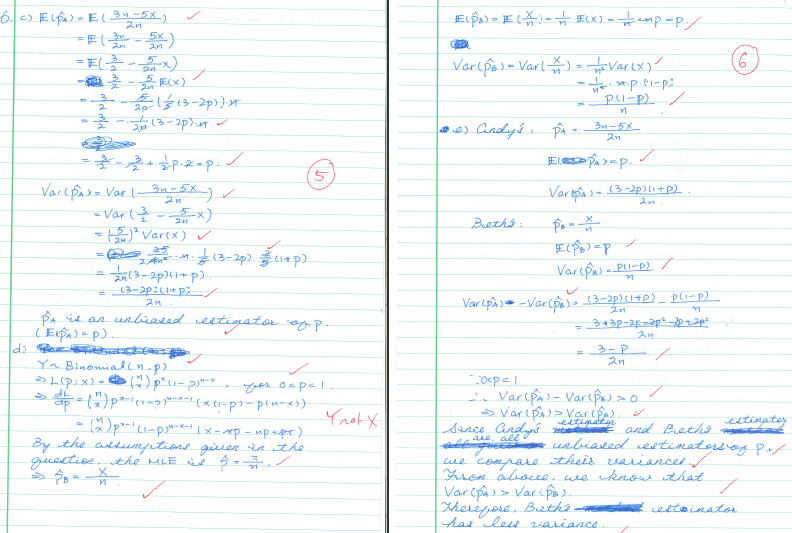 6. c) E(p̂A) = E(3n-5X/2n) ✓
= E(3n/2n - 5X/2n)
= E(3/2 - 5/2n X)
= 3/2 - 5/2n E(X) ✓
= 3/2 - 5/2n (1/5 (3-2p)) n
= 3/2 - 1/2n (3-2p) n ✓
= 3/2 - 3/2 + 1/2 p·2 = p. ✓
5
Var(p̂A) = Var(3n-5X/2n) ✓
= Var(3/2 - 5/2n X)
= (5/2n)² Var(X) ✓
= n · 1/5 (3-2p) 2/5 (1+p) ✓
= 1/2n (3-2p)(1+p)
= (3-2p)(1+p)/2n ✓
p̂A is an unbiased estimator of p.
(E(p̂A) = p). ✓
d)
Y~ Binomial(n, p) ✓
⇒ L(p; x) = (n x) p^x (1-p)^n-x, for 0<p<1 ✓
⇒ dL/dp = (n x) p^x-1 (1-p)^n-x-1 (x(1-p) - p(n-x)) ✓
= (n x) p^x-1 (1-p)^n-x-1 (x - xp - np + px)
Y not X
By the assumptions given in the
question, the MLE is p̂ = ✓
⇒ p̂B = X/n. ✓
E(p̂B) = E(X/n) = 1/n E(X) = 1/n · np = p. ✓
Var(p̂B) = Var(X/n) = 1/n² Var(X) ✓
6
= 1/n² · n · p · (1-p)
= p(1-p)/n ✓
e) Andy's: p̂A = 3n-5X/2n
E(p̂A) = p. ✓
Var(p̂A) = (3-2p)(1+p)/2n.
Beth's: p̂B = X/n
E(p̂B) = p ✓
Var(p̂B) = p(1-p)/n ✓
Var(p̂A) - Var(p̂B) = (3-2p)(1+p)/2n - p(1-p)/n ✓
= 3+3p-2p-2p²-2p+2p²/2n
= 3-p/2n ✓
∵ 0<p<1
∴ Var(p̂A) - Var(p̂B) > 0 ✓
⇒ Var(p̂A) > Var(p̂B). ✓
Since Andy's estimator and Beth's estimator
are all unbiased estimators of p, ✓
we compare their variances. ✓
From above, we know that
Var(p̂A) > Var(p̂B). ✓
Therefore, Beth's estimator
has less variance. ✓